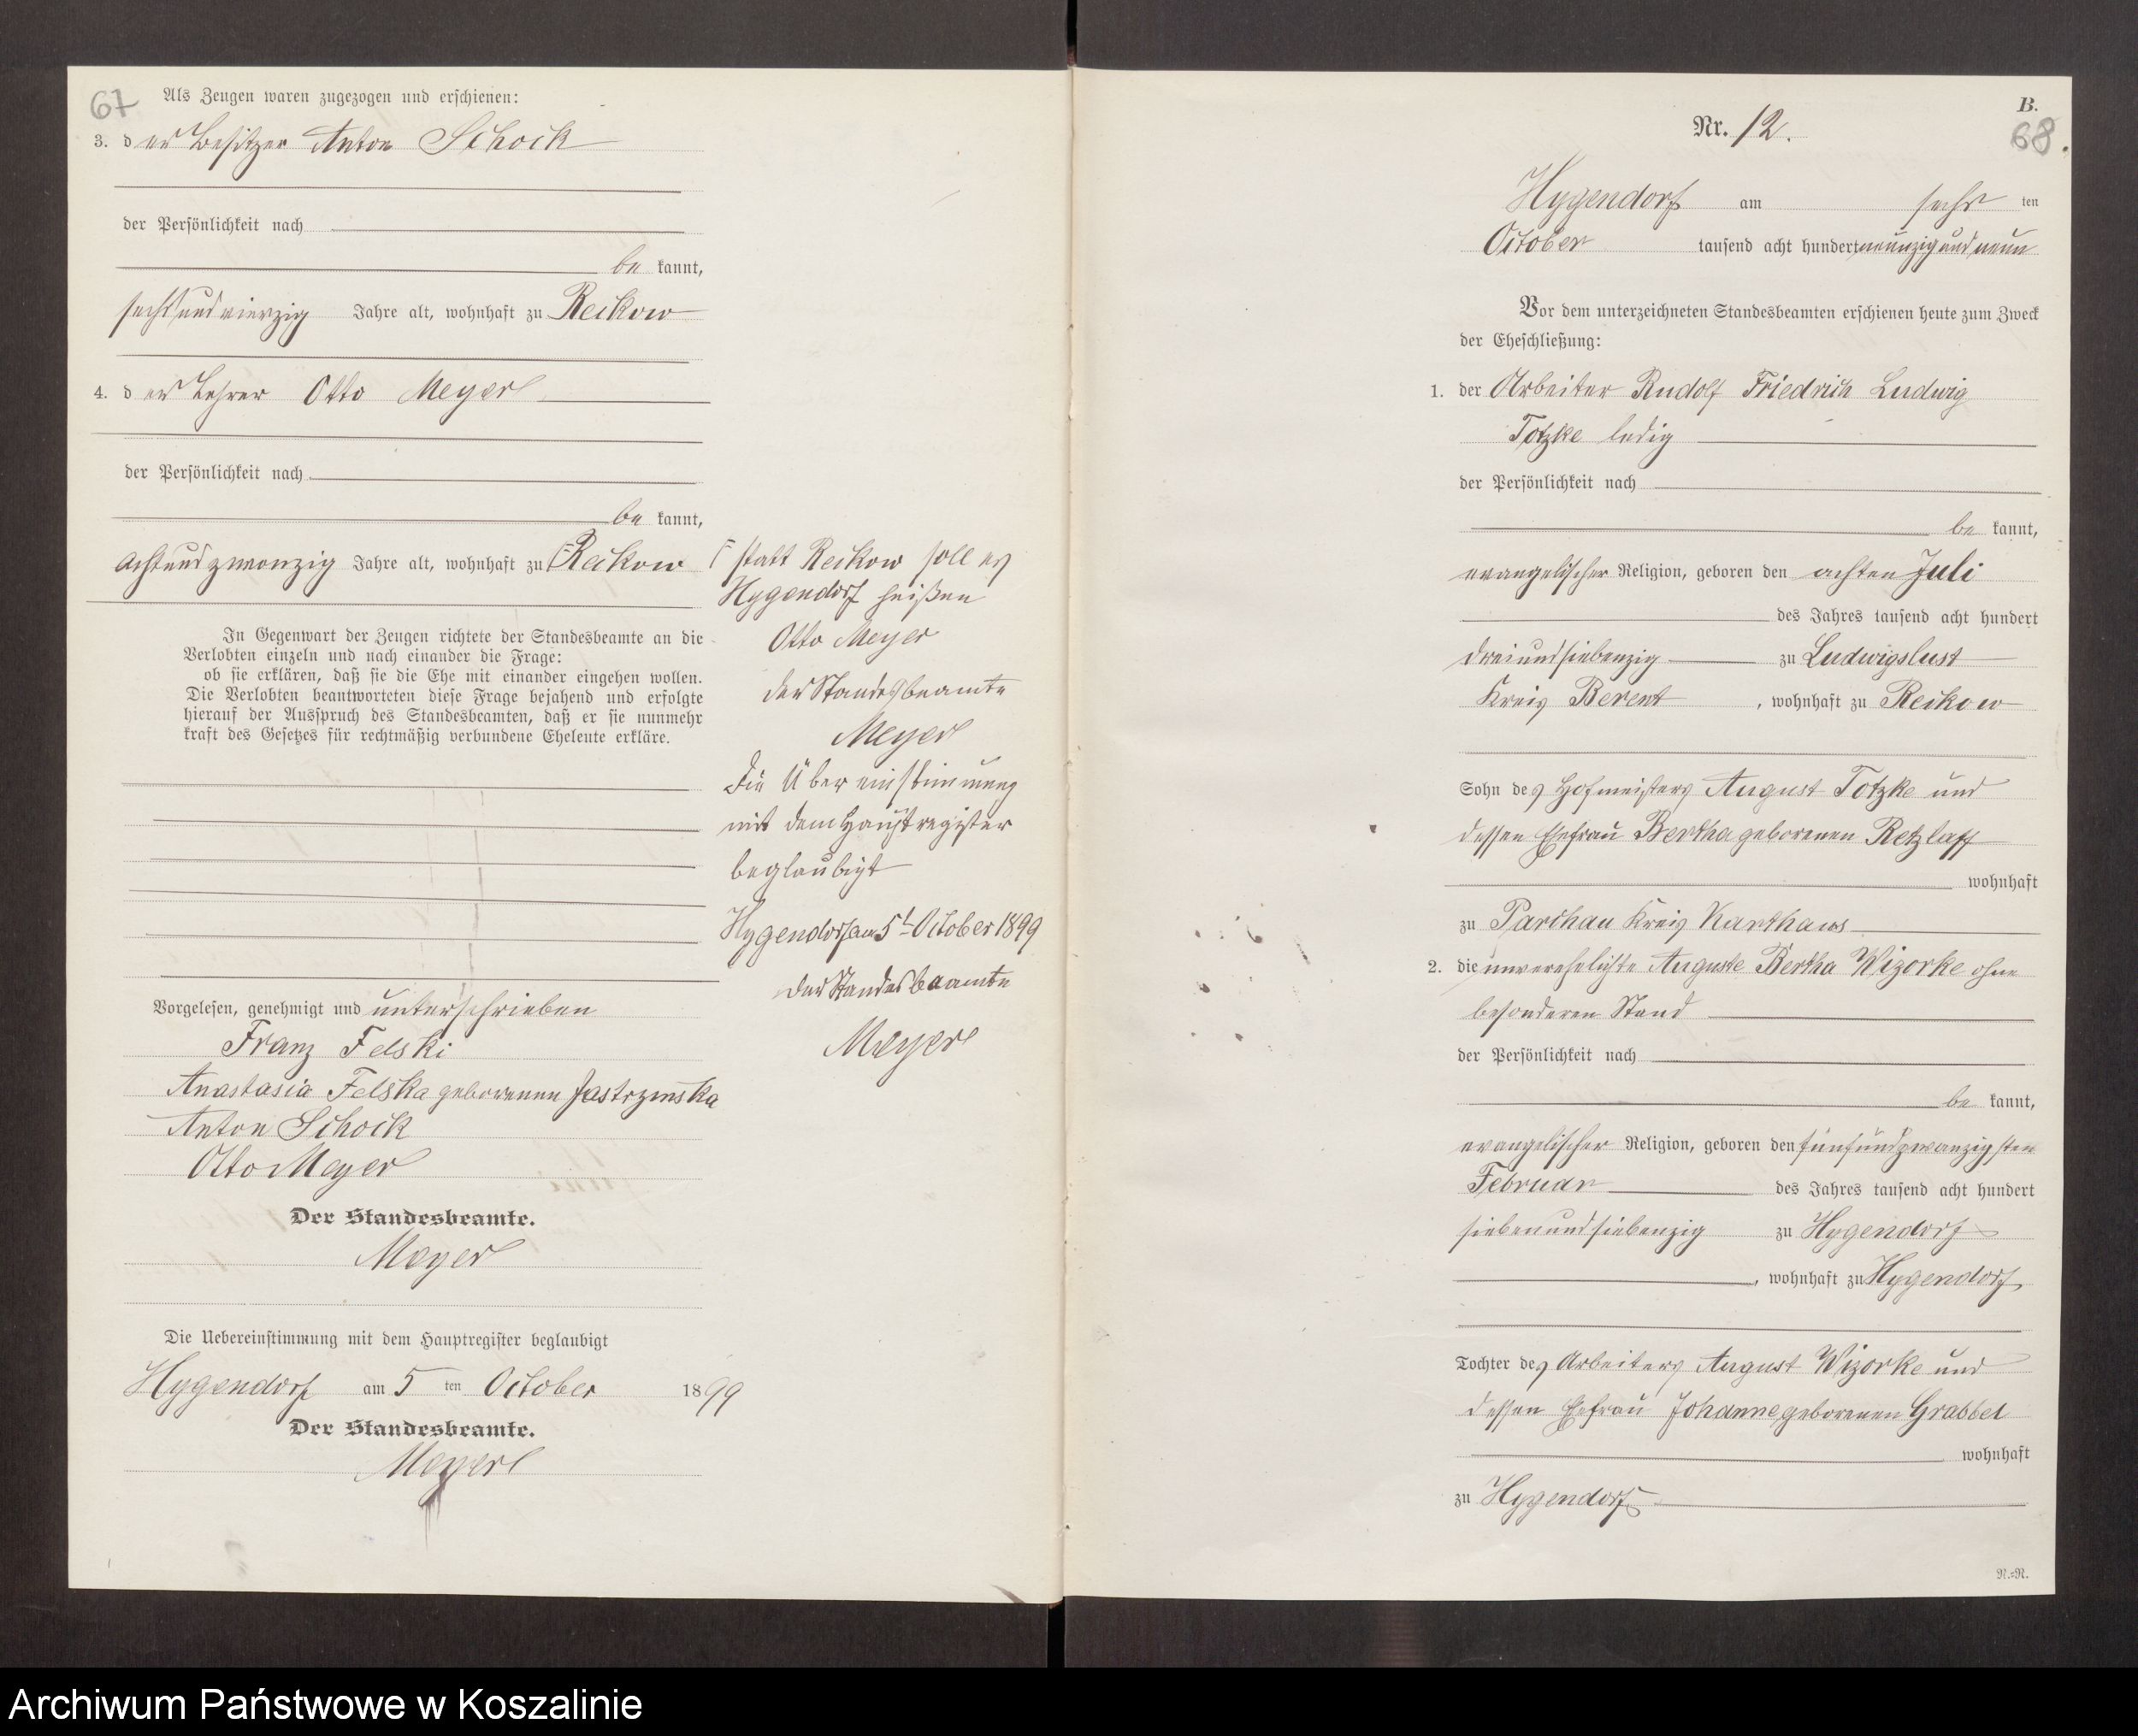 67
Als Zeugen waren zugezogen und erschienen:
3. der Besitzer Anton Schock
der Persönlichkeit nach
be kannt,
sechsundvierzig Jahre alt, wohnhaft zu Reikow
4. der Lehrer Otto Meyer
der Persönlichkeit nach
be kannt,
achtundzwanzig Jahre alt, wohnhaft zu Reikow
In Gegenwart der Zeugen richtete der Standesbeamte an die
Verlobten einzeln und nach einander die Frage:
ob sie erklären, daß sie die Ehe mit einander eingehen wollen.
Die Verlobten beantworteten diese Frage bejahend und erfolgte
hierauf der Ausspruch des Standesbeamten, daß er sie nunmehr
kraft des Gesetzes für rechtmäßig verbundene Eheleute erkläre.
Vorgelesen, genehmigt und unterschrieben
Franz Felski
Anastasia Felska geborenen Jastrzmska
Anton Schock
Otto Meyer
Der Standesbeamte.
Meyer
Die Uebereinstimmung mit dem Hauptregister beglaubigt
Hygendorf am 5 ten October 1899
Der Standesbeamte.
Meyer
statt Reikow soll es
Hygendorf heißen
Otto Meyer
Der Standesbeamte
Meyer
Die Übereinstimmung
mit dem Hauptregister
beglaubigt
Hygendorf am 5t October 1899
Der Standesbeamte
Meyer
B.
Nr. 12.
68.
Hygendorf am sechs ten
October tausend acht hundert neunzig und neun
Vor dem unterzeichneten Standesbeamten erschienen heute zum Zweck
der Eheschließung:
1. der Arbeiter Rudolf Friedrich Ludwig
Totzke ledig
der Persönlichkeit nach
be kannt,
evangelischer Religion, geboren den achten Juli
des Jahres tausend acht hundert
dreiundsiebenzig zu Ludwigslust
Kreis Berent, wohnhaft zu Reikow
Sohn des Hofmeisters August Totzke und
dessen Ehefrau Bertha geborenen Retzlaff
wohnhaft
zu Parchau Kreis Karthaus
2. die unverehelichte Auguste Bertha Wizorke ohne
besonderen Stand
der Persönlichkeit nach
be kannt,
evangelischer Religion, geboren den fünfundzwanzigsten
Februar des Jahres tausend acht hundert
siebenundsiebenzig zu Hygendorf
, wohnhaft zu Hygendorf,
Tochter des Arbeiters August Wizorke und
dessen Ehefrau Johanne geborenen Grabbel
wohnhaft
zu Hygendorf
N.=N.
Archiwum Państwowe w Koszalinie